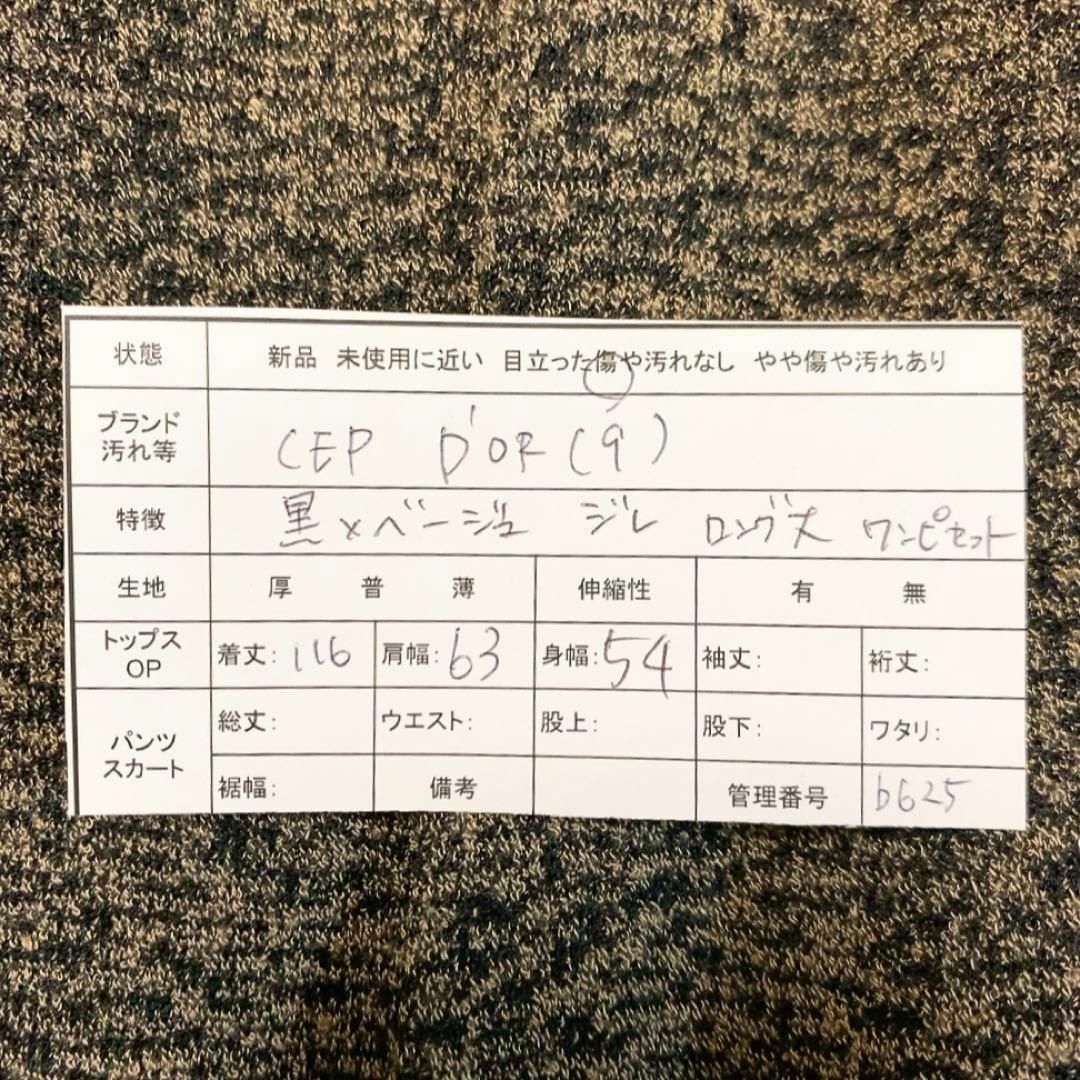 状態 新品 未使用に近い 目立った傷や汚れなし やや傷や汚れあり
ブランド
汚れ等 CEP D'OR (9)
特徴 黒×ベージュ ジレ ロング丈 ワンピセット
生地 厚 普 薄 伸縮性 有 無
トップス
OP 着丈: 116 肩幅: 63 身幅: 54 袖丈: 裄丈:
パンツ
スカート 総丈: ウエスト: 股上: 股下: ワタリ:
裾幅: 備考 管理番号 b625